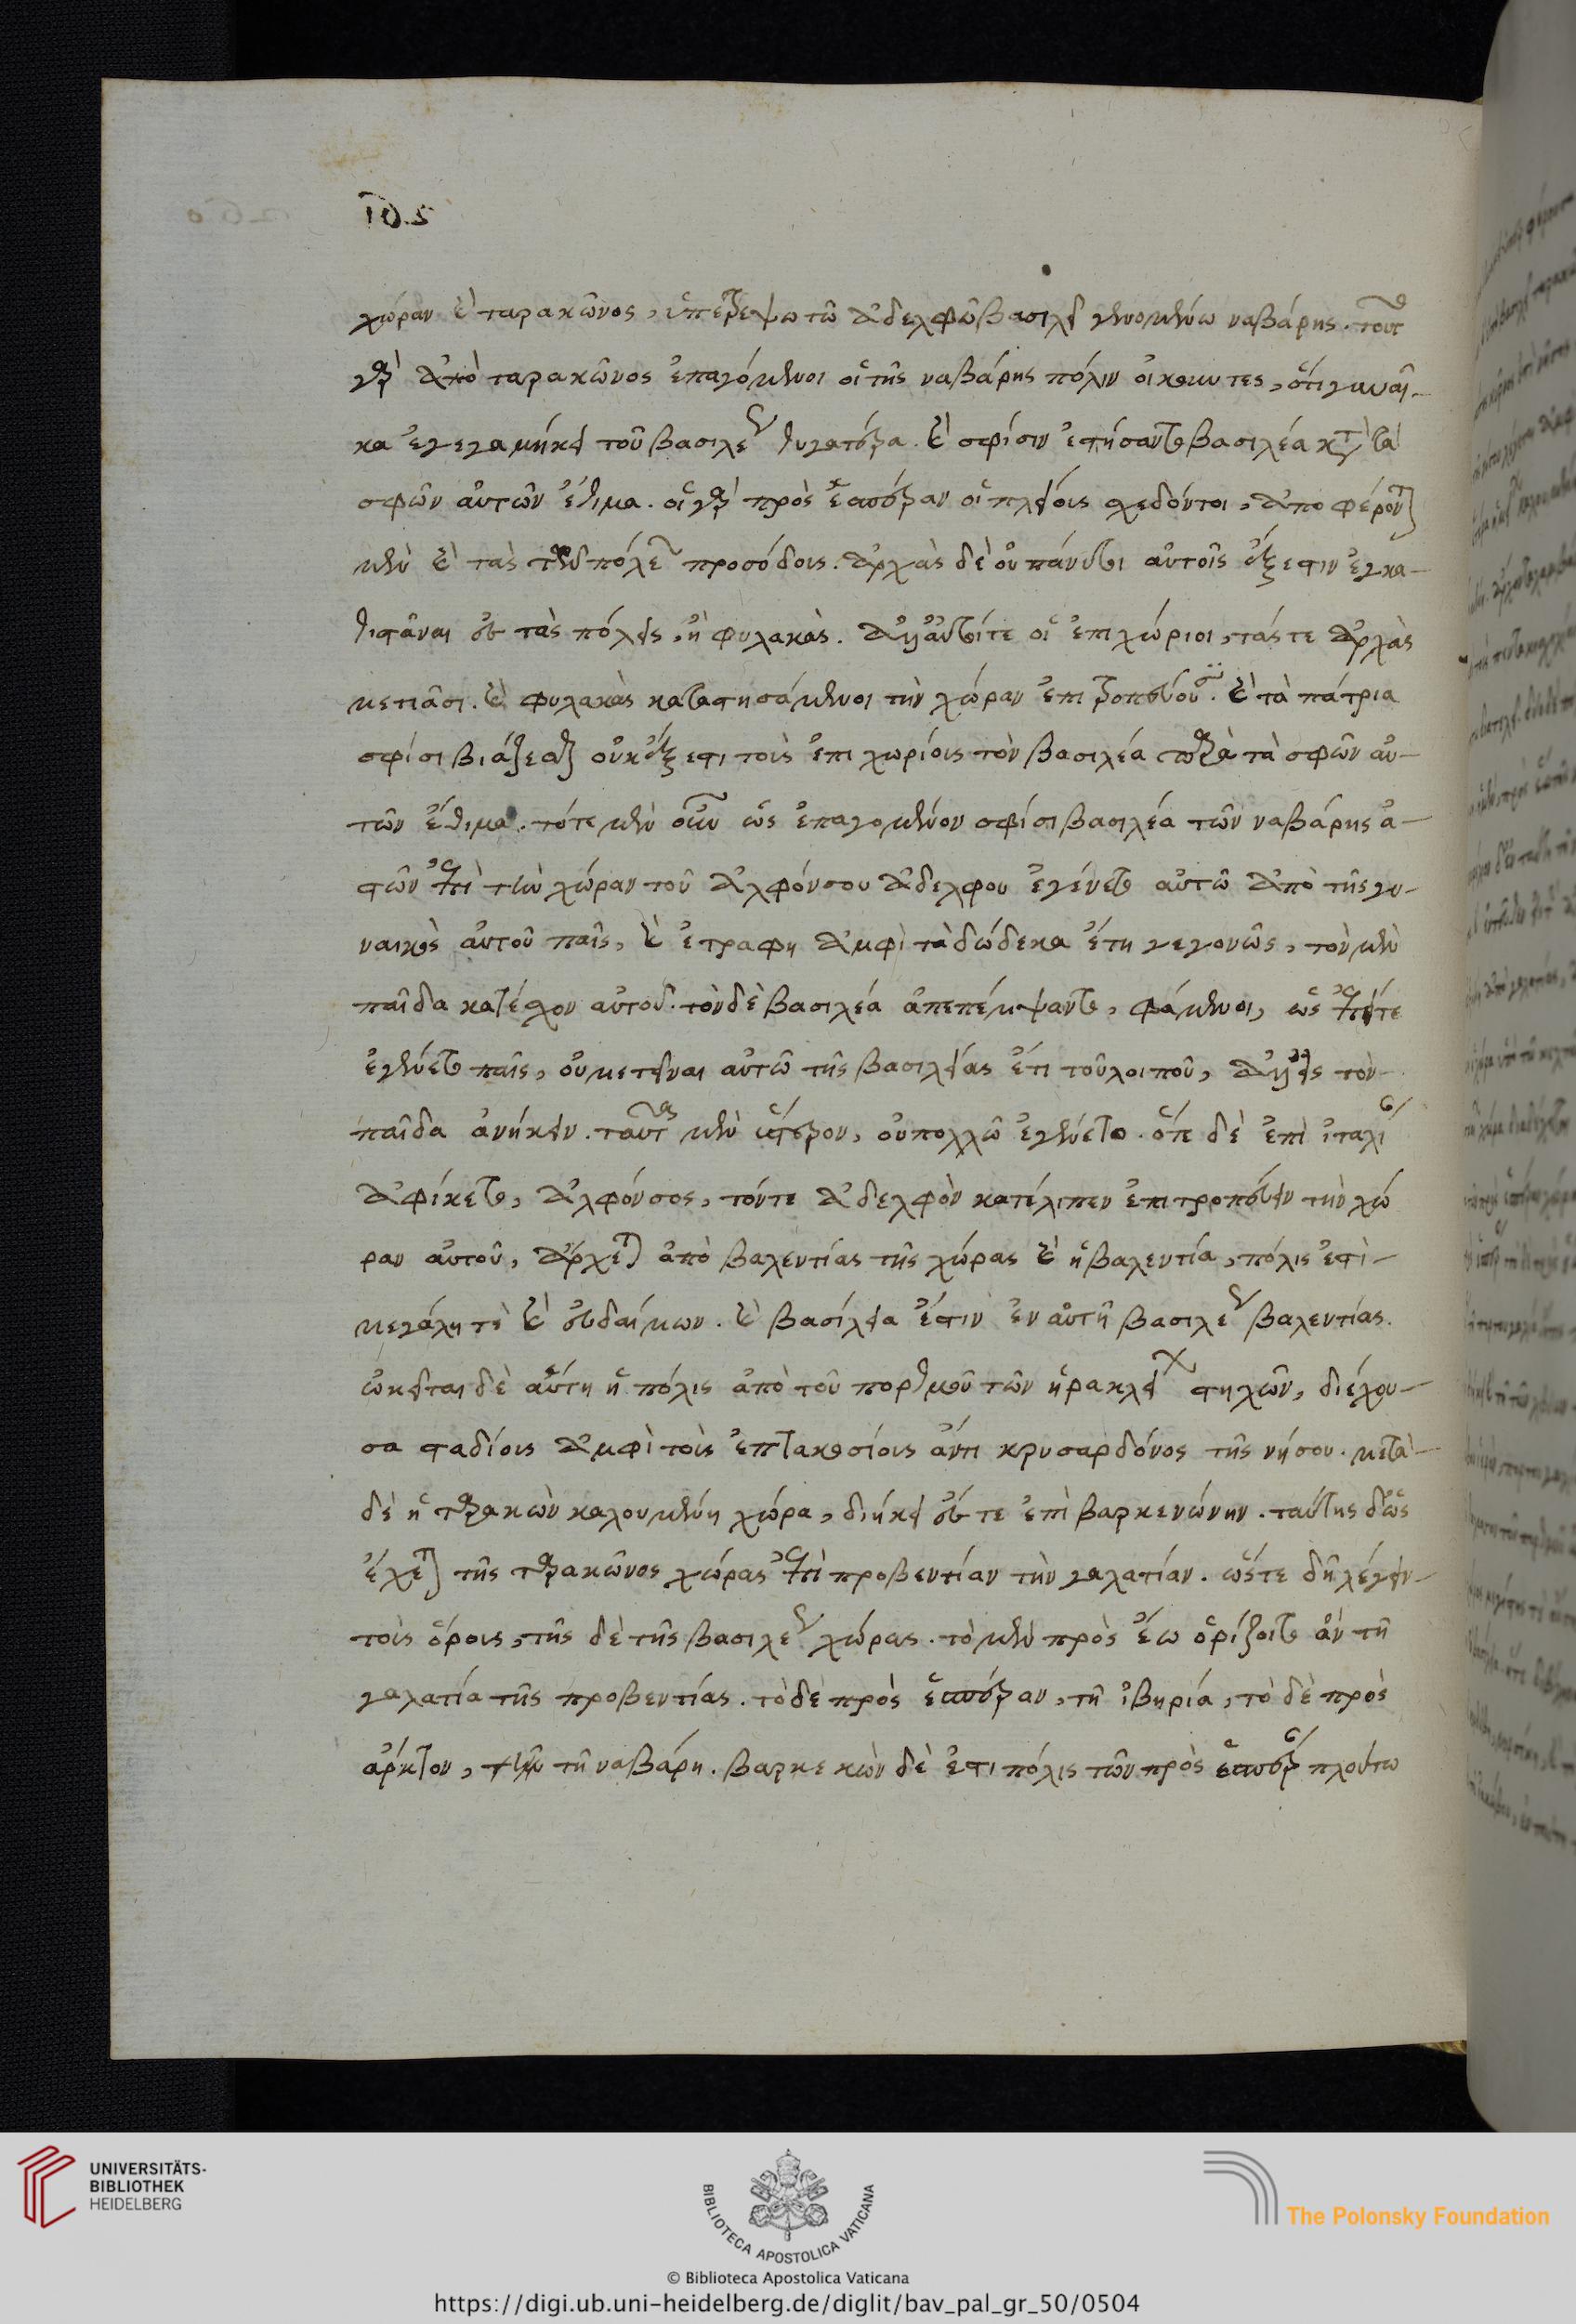 261
χώραν καὶ ταρακῶνος, ἐπέτρεψω τῶ ἀδελφῶ βασιλεῖ γενομένω ναβάρης. τοῦτον
γὰρ ἀπὸ ταρακῶνος ἐπαγόμενοι οἱ τῆς ναβάρης πόλιν οἰκοῦντες, ὅτι γυναῖ-
κα ἐγεγαμήκει τοῦ βασιλέως θυγατέρα. καὶ σφίσιν ἐστήσαντο βασιλέα κατὰ τὰ
σφῶν αὐτῶν ἔθιμα. οἱ γὰρ πρὸς ἑσπέραν οἱ πλείοις σχεδόντοι, ἀποφέρονται
μὲν καὶ τὰς τῶν πόλεων προσόδοις. ἀρχὰς δὲ οὐ πάνυ τι αὐτοῖς ἔξεστιν ἐγκα-
θιστάναι εὐ τὰς πόλεις, ἢ φυλακὰς. ἀλλ' αὐτοίτε οἱ ἐπιχώριοι, τάς τε ἀρχὰς
μετιᾶσι. καὶ φυλακὰς καταστησάμενοι τὴν χώραν ἐπιτροπεύουσι. καὶ τὰ πάτρια
σφίσι βιάζεσθαι οὐκ ἔξεστι τοῖς ἐπιχωρίοις τὸν βασιλέα παρὰ τὰ σφῶν αὐ-
τῶν ἔθιμα. τότε μὲν οὖν ὡς ἐπαγομένον σφίσι βασιλέα τῶν ναβάρης ἀ-
στῶν ἐπὶ τὴν χώραν τοῦ ἀλφόνσου ἀδελφου ἐγένετο αὐτῶ ἀπὸ τῆς γυ-
ναικὸς αὐτοῦ παῖς, καὶ ἐτραφη ἀμφὶ τὰ δώδεκα ἔτη γεγονῶς, τὸν μὲν
παῖδα κατέσχον αὐτοῦ. τὸν δὲ βασιλέα ἀπεπέμψαντο, φάμενοι, ὡς ἐπείτε
ἐγένετο παῖς, οὐ μετεῖναι αὐτῶ τῆς βασιλείας ἔτι τοῦ λοιποῦ, ἀλλ' εἰς τὸν
παῖδα ἀνήκειν. ταῦτα μὲν ὕστερον, οὐ πολλῶ ἐγένετο. ὅτε δὲ ἐπὶ ἰταλίαν
ἀφίκετο, ἀλφόνσος, τόντε ἀδελφὸν κατέλιπεν ἐπιτροπεύειν τὴν χώ
ραν αὐτοῦ, ἄρχεται ἀπὸ βαλεντίας τῆς χώρας καὶ ἡ βαλεντία, πόλις ἐστὶ
μεγάλη τὲ καὶ εὐδαίμων. καὶ βασίλεια ἐστιν ἐν αὐτῆ βασιλέως βαλεντίας.
ὤκεῖται δὲ αὕτη ἡ πόλις ἀπὸ τοῦ πορθμοῦ τῶν ἡρακλείων στηλῶν, διέχου-
σα σταδίοις ἀμφὶ τοῖς ἑπτακοσίοις ἀντικρυ σαρδόνος τῆς νήσου. μετὰ
δὲ ἡ ταρακὼν καλουμένη χώρα, διήκει εὐ τε ἐπὶ βαρκενώνην. ταύτης δ' ὡς
ἔχεται τῆς ταρακῶνος χώρας ἐπὶ προβεντίαν τὴν γαλατίαν. ὥστε δὴ λέγειν
τοῖς ὅροις, τῆς δὲ τῆς βασιλέως χώρας. τὸ μὲν πρὸς ἕω ὁρίζοιτο ἂν τῆ
γαλατία τῆς προβεντίας. τὸ δε πρὸς ἑσπέραν, τῆ ἰβηρία, τὸ δὲ πρὸς
ἄρκτον, τῆ ναβάρη. βαρκεκὼν δὲ ἐστι πόλις τῶν πρὸς ἑσπέραν πλούτω
UNIVERSITÄTS-
BIBLIOTHEK
HEIDELBERG
BIBLIOTECA APOSTOLICA VATICANA
The Polonsky Foundation
© Biblioteca Apostolica Vaticana
https://digi.ub.uni-heidelberg.de/diglit/bav_pal_gr_50/0504